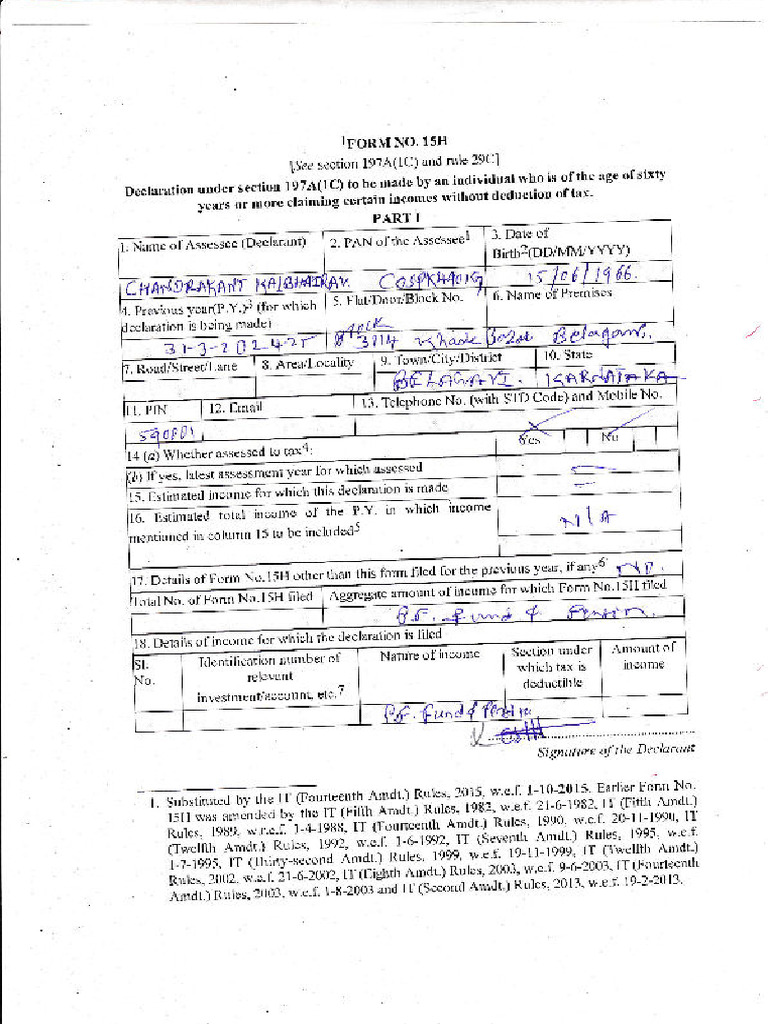 ¹FORM NO. 15H
[See section 197A(1C) and rule 29C]
Declaration under section 197A(1C) to be made by an individual who is of the age of sixty
years or more claiming certain incomes without deduction of tax.
PART I
1. Name of Assessee (Declarant) 2. PAN of the Assessee¹ 3. Date of
Birth²(DD/MM/YYYY)
CHANDRAKANT 15/06/1966.
4. Previous year(P.Y.)³ (for which
declaration is being made) 5. Flat/Door/Block No. 6. Name of Premises
3114
7. Road/Street/Lane 8. Area/Locality 9. Town/City/District 10. State
BELAGAVI. KARNATAKA
11. PIN 12. Email 13. Telephone No. (with STD Code) and Mobile No.
590001
14 (a) Whether assessed to tax⁴: Yes No
(b) If yes, latest assessment year for which assessed
15. Estimated income for which this declaration is made
16. Estimated total income of the P.Y. in which income
mentioned in column 15 to be included⁵ N/A
17. Details of Form No.15H other than this form filed for the previous year, if any⁶
Total No. of Form No.15H filed Aggregate amount of income for which Form No.15H filed
P.F. Fund & Pension.
18. Details of income for which the declaration is filed
Sl. No. Identification number of relevant investment/account, etc.⁷ Nature of income Section under which tax is deductible Amount of income
P.F. Fund &
Signature of the Declarant
1. Substituted by the IT (Fourteenth Amdt.) Rules, 2015, w.e.f. 1-10-2015. Earlier Form No.
15H was amended by the IT (Fifth Amdt.) Rules, 1982, w.e.f. 21-6-1982, IT (Fifth Amdt.)
Rules, 1989, w.r.e.f. 1-4-1988, IT (Fourteenth Amdt.) Rules, 1990, w.e.f. 20-11-1990, IT
(Twelfth Amdt.) Rules, 1992, w.e.f. 1-6-1992, IT (Seventh Amdt.) Rules, 1995, w.e.f.
1-7-1995, IT (Thirty-second Amdt.) Rules, 1999, w.e.f. 19-11-1999, IT (Twelfth Amdt.)
Rules, 2002, w.e.f. 21-6-2002, IT (Eighth Amdt.) Rules, 2003, w.e.f. 9-6-2003, IT (Fourteenth
Amdt.) Rules, 2003, w.e.f. 1-8-2003 and IT (Second Amdt.) Rules, 2013, w.e.f. 19-2-2013.